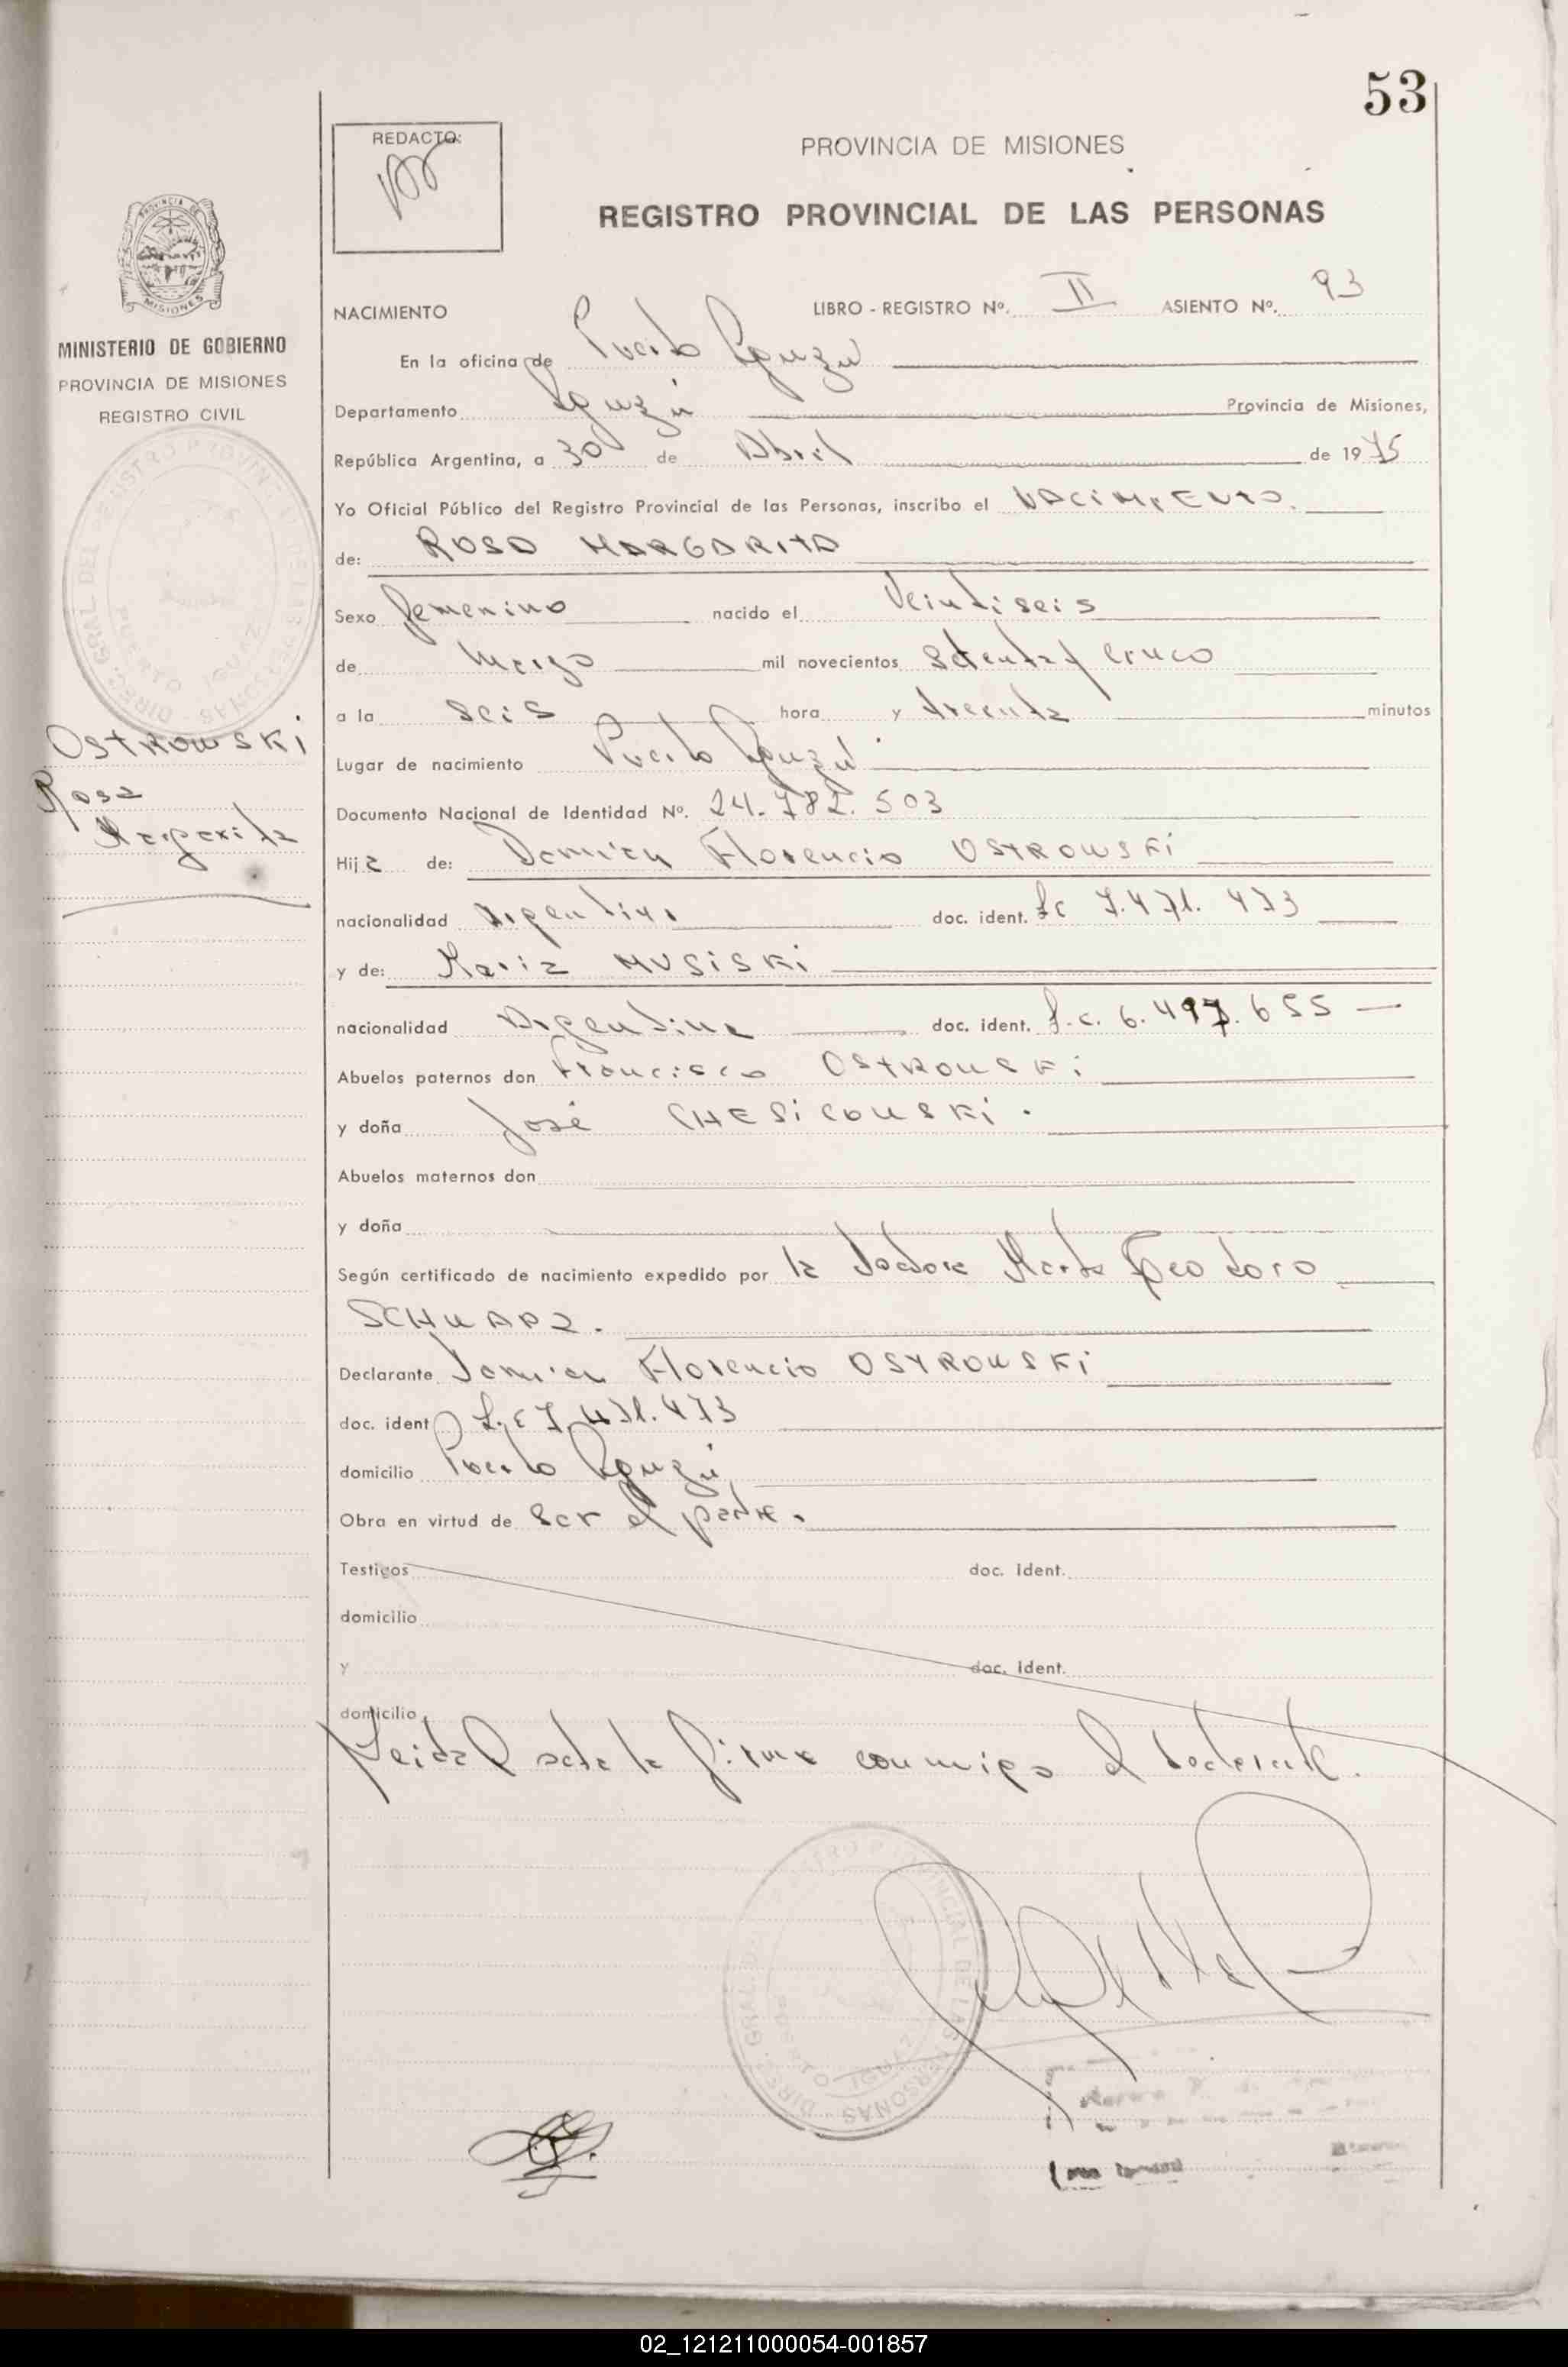 53
REDACTO:
PROVINCIA DE MISIONES
REGISTRO PROVINCIAL DE LAS PERSONAS
PROVINCIA DE
MISIONES
MINISTERIO DE GOBIERNO
PROVINCIA DE MISIONES
REGISTRO CIVIL
OSTROWSKi
Rosa
Margarita
NACIMIENTO LIBRO - REGISTRO Nº. II ASIENTO Nº. 93
En la oficina de Puerto Iguazú
Departamento Iguazú Provincia de Misiones,
República Argentina, a 30 de Abril de 1975
Yo Oficial Público del Registro Provincial de las Personas, inscribo el NACIMIENTO.
de: ROSA MARGARITA
Sexo femenino nacido el Veintiseis
de Marzo mil novecientos setenta y cinco
a la seis hora y treinta minutos
Lugar de nacimiento Puerto Iguazú
Documento Nacional de Identidad Nº. 24.782.503
Hija de: Damian Florencio OSTROWSKi
nacionalidad Argentino doc. ident. 7.471.473
y de: Maria MUSiSKi
nacionalidad Argentina doc. ident. L.C. 6.497.655
Abuelos paternos don Francisco OSTROWSKi
y doña José CHESiCOWSKi.
Abuelos maternos don
y doña
Según certificado de nacimiento expedido por la doctora Marta Teodoro
SCHWARZ.
Declarante Damian Florencio OSTROWSKi
doc. ident L.E 7.471.473
domicilio Puerto Iguazú
Obra en virtud de ser el padre.
Testigos doc. Ident.
domicilio
y doc. Ident.
domicilio
Leida el acta la firma conmigo el declarante.
02_121211000054-001857